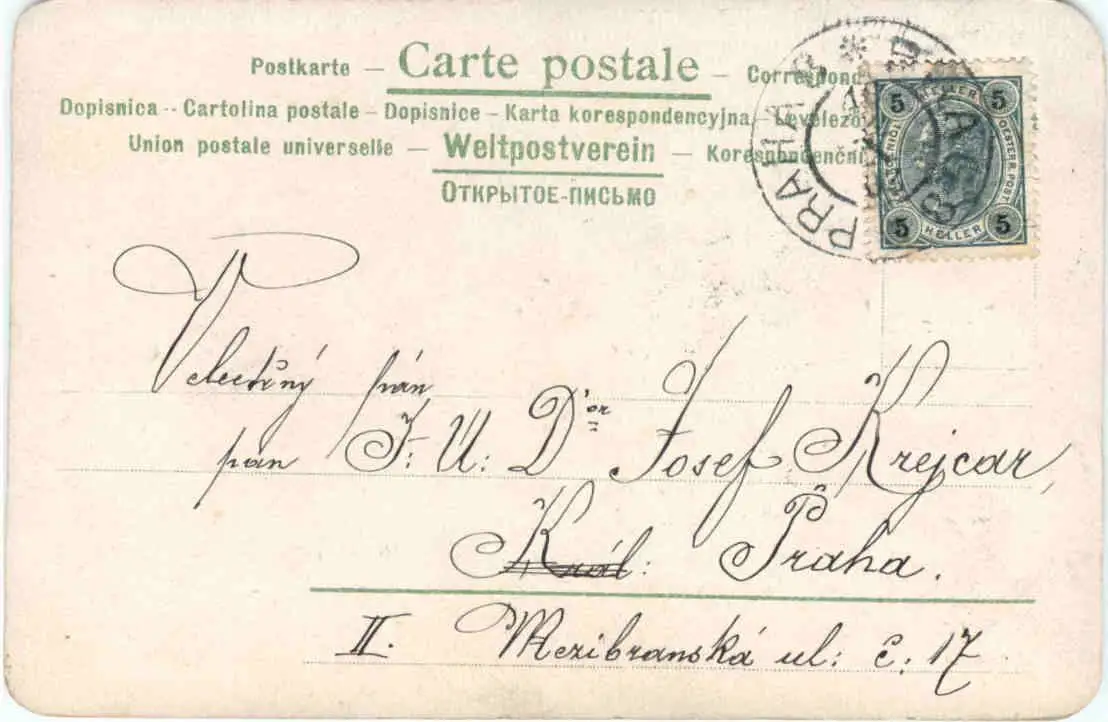 Postkarte – Carte postale – Correspond
Dopisnica -- Cartolina postale – Dopisnice – Karta korespondencyjna – Levelező
Union postale universelle – Weltpostverein – Korespondenční
ОТКРЫТОЕ-ПИСЬМО
PRAHA
5 HELLER 5
OESTERR. POST
5 HELLER 5
Velectěný pán,
pan J: U: Dor Josef Krejcar,
Král: Praha.
II. Mezibranská ul: č: 17